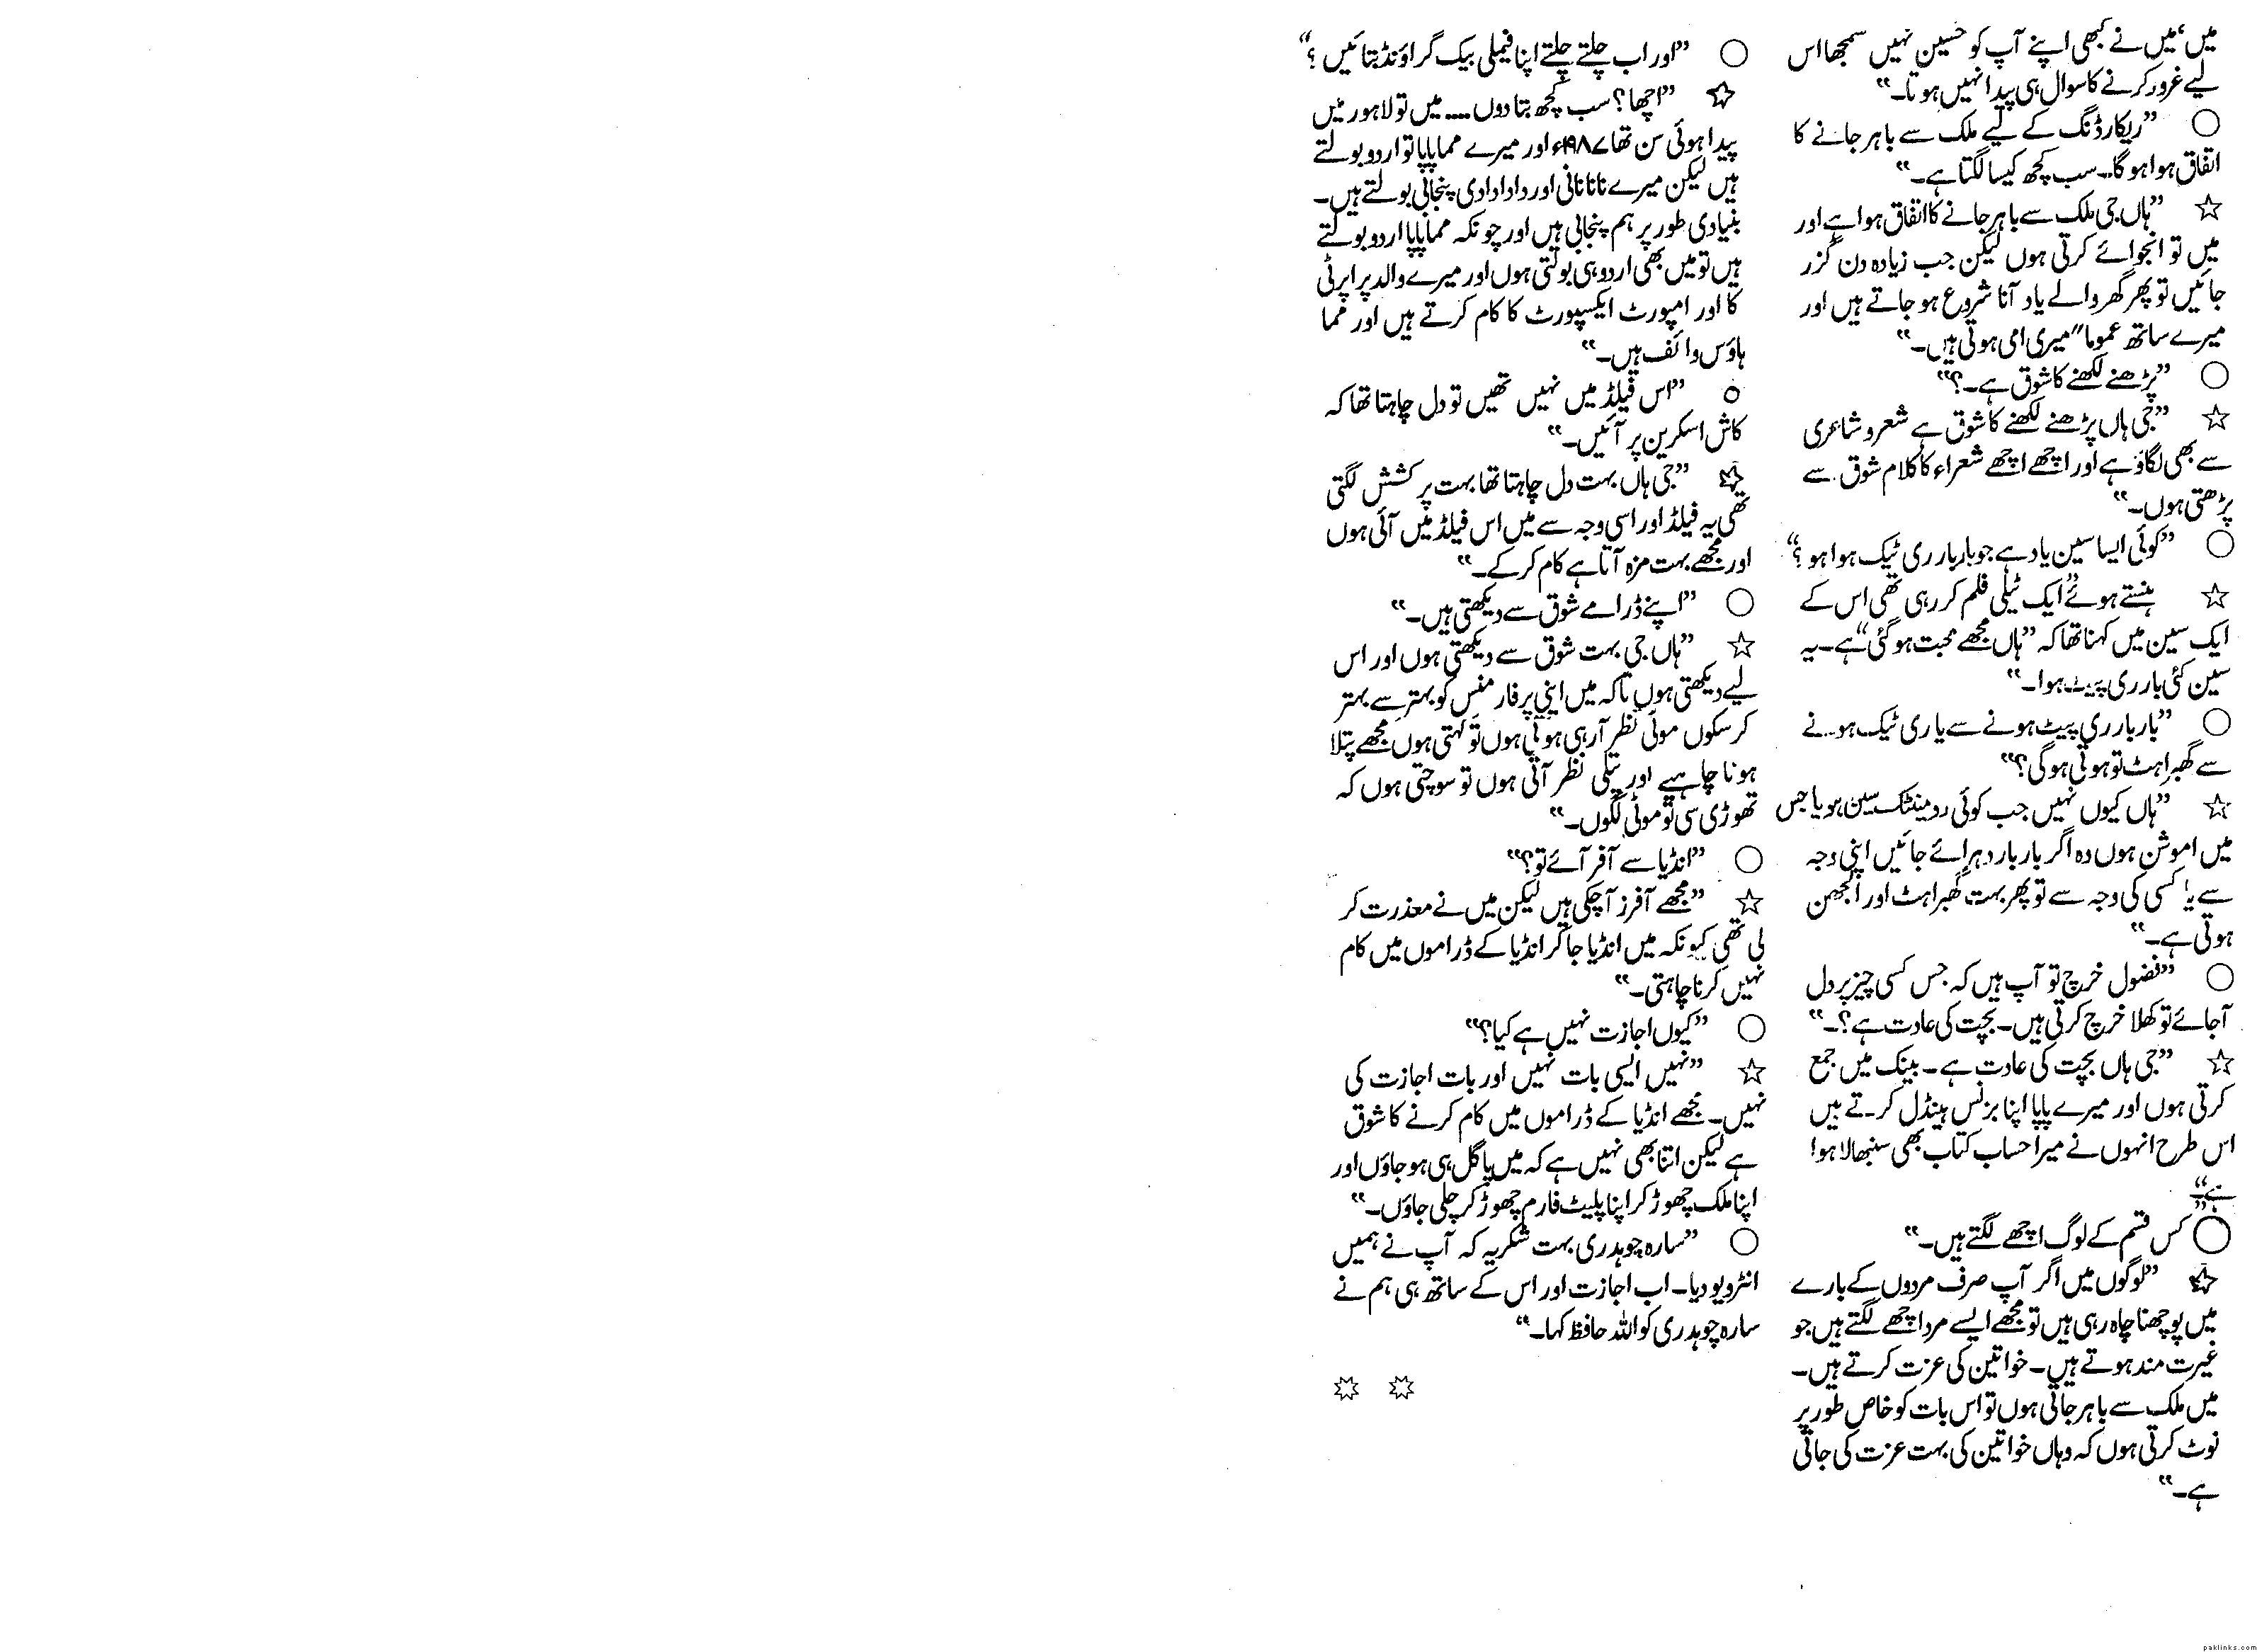 میں‘ میں نے کبھی اپنے آپ کو حسین نہیں سمجھا اس
لیے غرور کرنے کا سوال ہی پیدا نہیں ہوتا۔“
○ ”ریکارڈنگ کے لیے ملک سے باہر جانے کا
اتفاق ہوا ہو گا۔ سب کچھ کیسا لگتا ہے۔“
☆ ”ہاں جی ملک سے باہر جانے کا اتفاق ہوا ہے اور
میں تو انجوائے کرتی ہوں لیکن جب زیادہ دن گزر
جائیں تو پھر گھر والے یاد آنا شروع ہو جاتے ہیں اور
میرے ساتھ عموما″ میری امی ہوتی ہیں۔“
○ ”پڑھنے لکھنے کا شوق ہے۔؟“
☆ ”جی ہاں پڑھنے لکھنے کا شوق ہے شعر و شاعری
سے بھی لگاؤ ہے اور اچھے اچھے شعراء کا کلام شوق سے
پڑھتی ہوں۔“
○ ”کوئی ایسا سین یاد ہے جو بار بار ری ٹیک ہوا ہو؟“
☆ ہنستے ہوئے ”ایک ٹیلی فلم کر رہی تھی اس کے
ایک سین میں کہنا تھا کہ ”ہاں مجھے محبت ہو گئی“ ہے۔ یہ
سین کئی بار ری پیٹ ہوا۔“
○ ”بار بار ری پیٹ ہونے سے یا ری ٹیک ہونے
سے گھبراہٹ تو ہوتی ہو گی؟“
☆ ”ہاں کیوں نہیں جب کوئی رومینٹک سین ہو یا جس
میں اموشن ہوں وہ اگر بار بار دہرائے جائیں اپنی وجہ
سے یا کسی کی وجہ سے تو پھر بہت گھبراہٹ اور الجھن
ہوتی ہے۔“
○ ”فضول خرچ تو آپ ہیں کہ جس کسی چیز پر دل
آ جائے تو کھلا خرچ کرتی ہیں۔ بچت کی عادت ہے؟۔“
☆ ”جی ہاں بچت کی عادت ہے۔ بینک میں جمع
کرتی ہوں اور میرے پاپا اپنا بزنس ہینڈل کرتے ہیں
اس طرح انہوں نے میرا حساب کتاب بھی سنبھالا ہوا
ہے۔“
○ ”کس قسم کے لوگ اچھے لگتے ہیں۔“
☆ ”لوگوں میں اگر آپ صرف مردوں کے بارے
میں پوچھنا چاہ رہی ہیں تو مجھے ایسے مرد اچھے لگتے ہیں جو
غیرت مند ہوتے ہیں۔ خواتین کی عزت کرتے ہیں۔
میں ملک سے باہر جاتی ہوں تو اس بات کو خاص طور پر
نوٹ کرتی ہوں کہ وہاں خواتین کی بہت عزت کی جاتی
ہے۔“
○ ”اور اب چلتے چلتے اپنا فیملی بیک گراؤنڈ بتائیں؟“
☆ ”اچھا؟ سب کچھ بتا دوں .... میں تو لاہور میں
پیدا ہوئی سن تھا ۱۹۸۷ء اور میرے مما پاپا تو اردو بولتے
ہیں لیکن میرے نانا نانی اور دادا دادی پنجابی بولتے ہیں۔
بنیادی طور پر ہم پنجابی ہیں اور چونکہ مما پاپا اردو بولتے
ہیں تو میں بھی اردو ہی بولتی ہوں اور میرے والد پراپرٹی
کا اور امپورٹ ایکسپورٹ کا کام کرتے ہیں اور مما
ہاؤس وائف ہیں۔“
○ ”اس فیلڈ میں نہیں تھیں تو دل چاہتا تھا کہ
کاش اسکرین پر آئیں۔“
☆ ”جی ہاں بہت دل چاہتا تھا بہت پر کشش لگتی
تھی یہ فیلڈ اور اسی وجہ سے میں اس فیلڈ میں آئی ہوں
اور مجھے بہت مزہ آتا ہے کام کر کے۔“
○ ”اپنے ڈرامے شوق سے دیکھتی ہیں۔“
☆ ”ہاں جی بہت شوق سے دیکھتی ہوں اور اس
لیے دیکھتی ہوں تاکہ میں اپنی پرفارمنس کو بہتر سے بہتر
کر سکوں موٹی نظر آ رہی ہوتی ہوں تو کہتی ہوں مجھے پتلا
ہونا چاہیے اور پتلی نظر آتی ہوں تو سوچتی ہوں کہ
تھوڑی سی تو موٹی لگوں۔“
○ ”انڈیا سے آفر آئے تو؟“
☆ ”مجھے آفرز آ چکی ہیں لیکن میں نے معذرت کر
لی تھی کیونکہ میں انڈیا جا کر انڈیا کے ڈراموں میں کام
نہیں کرنا چاہتی۔“
○ ”کیوں اجازت نہیں ہے کیا؟“
☆ ”نہیں ایسی بات نہیں اور بات اجازت کی
نہیں۔ مجھے انڈیا کے ڈراموں میں کام کرنے کا شوق
ہے لیکن اتنا بھی نہیں ہے کہ میں پاگل ہی ہو جاؤں اور
اپنا ملک چھوڑ کر اپنا پلیٹ فارم چھوڑ کر چلی جاؤں۔“
○ ”سارہ چوہدری بہت شکریہ کہ آپ نے ہمیں
انٹرویو دیا۔ اب اجازت اور اس کے ساتھ ہی ہم نے
سارہ چوہدری کو اللہ حافظ کہا۔“
paklinks.com